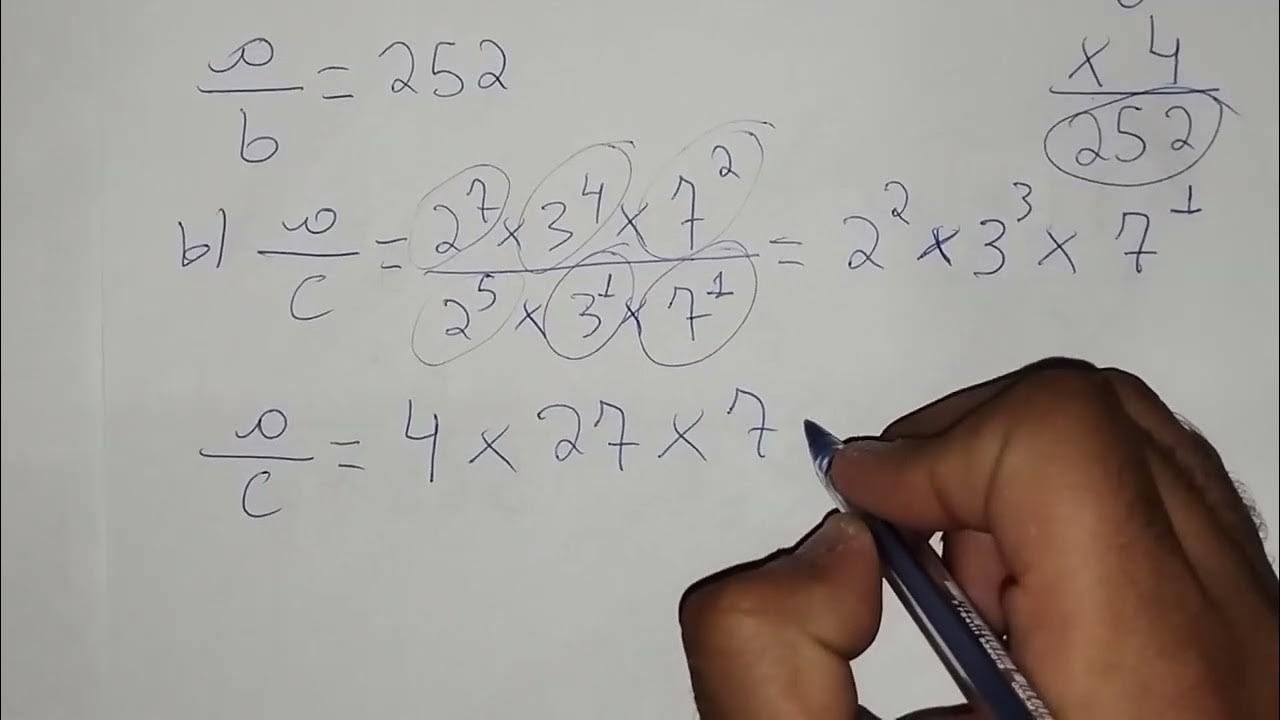 a/b = 252
x 4
252
b) a/c = 2⁷ x 3⁴ x 7² / 2⁵ x 3¹ x 7¹ = 2² x 3³ x 7¹
a/c = 4 x 27 x 7